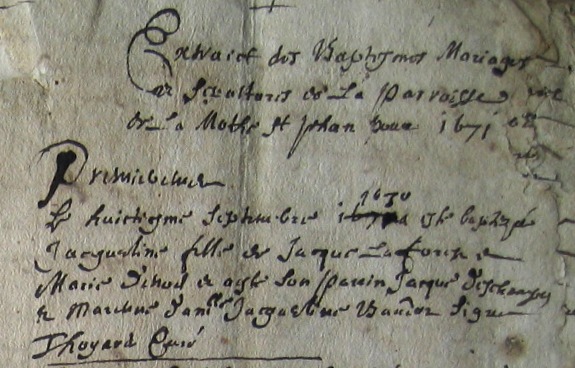 Extraict des Baptesmes Mariages
et Sepultures de La Parroisse
de La Mothe St Jehan pour 1671
Premierement
1670
Le huictiesme Septembre este baptizé
Jacqueline fille de Jacque et
Marie et a esté son parin Jacque
et Mareine Jacqueline Signé
Thoyard Curé